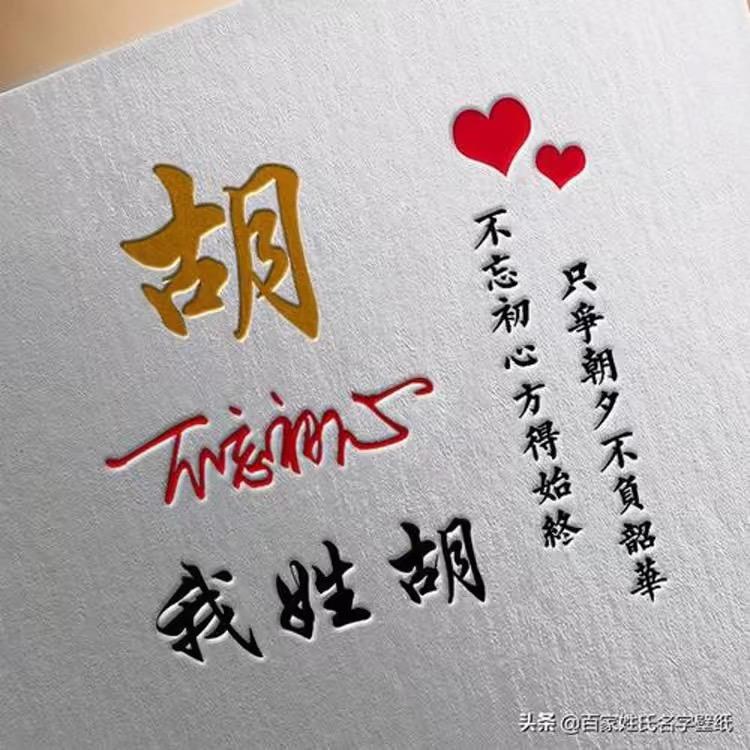 胡
不忘初心
我姓胡
只爭朝夕不負韶華
不忘初心方得始終
头条 @百家姓氏名字壁纸